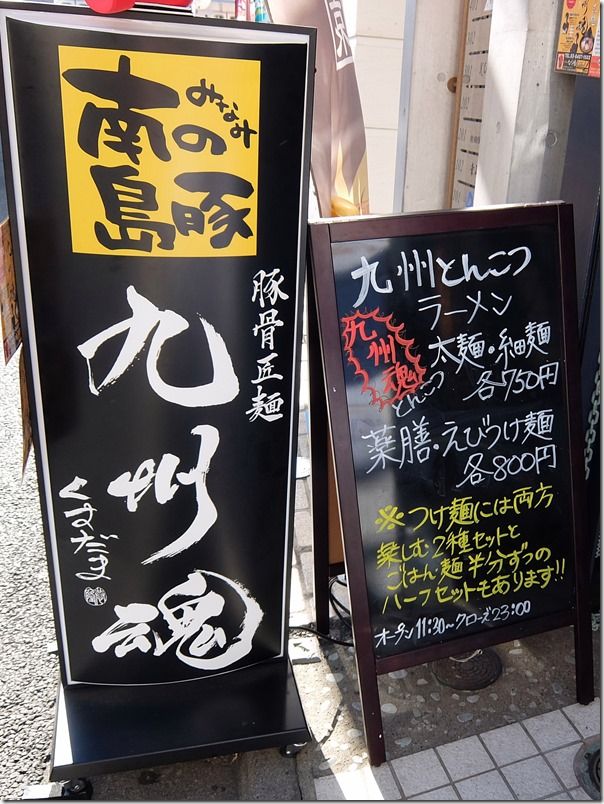 みなみの
南の島豚
豚骨匠麺
九州魂
くすだま
九州とんこつ
ラーメン
九州魂
太麺・細麺
各750円
とんこつ
薬膳・えびつけ麺
各800円
※つけ麺には両方
楽しむ2種セットと
ごはん・麺半分ずつの
ハーフセットもあります!!
オープン11:30～クローズ23:00